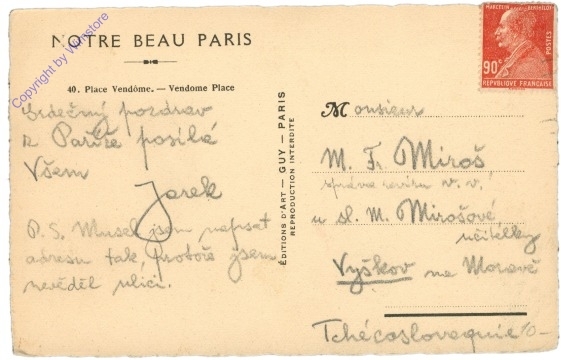 NOTRE BEAU PARIS
40. Place Vendôme. — Vendome Place
Srdečný pozdrav
z Paříže posílá
Všem
Jarek
P.S. Musel jsem napsat
adresu tak protože jsem
nevěděl ulici.
EDITIONS D'ART — GUY — PARIS
REPRODUCTION INTERDITE
MARCELIN BERTHELOT
POSTES
90c
REPUBLIQUE FRANÇAISE
Monsieur
M. Fr. Miroš
správce revíru v. v.
u sl. M. Mirošové
učitelky
Vyškov na Moravě
Tchécoslovaquie
Copyright by Wilnstore